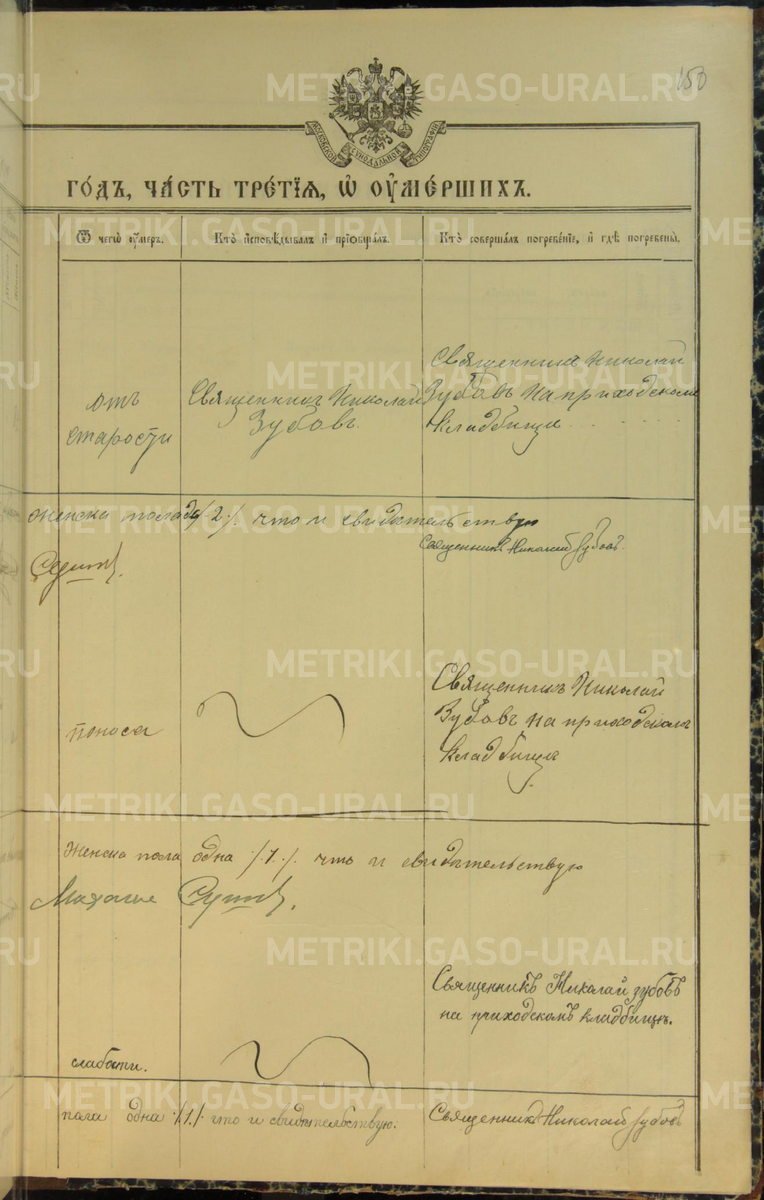 150
МОСКОВСКОЙ СѴНОДАЛЬНОЙ ТИПОГРАФІИ
ГО́ДЪ, ЧА́СТЬ ТРЕ́ТІѦ, Ѡ҆ ОУ҆МЕ́РШИХЪ.
Ѿ чегѡ̀ оу҆́меръ.
Кто̀ и҆сповѣ́дывалъ и҆ прїѡбща́лъ.
Кто̀ соверша́лъ погребе́нїе, и҆ гдѣ̀ погребены̀.
отъ
старости
Священникъ Николай
Зубовъ
Священникъ Николай
Зубовъ на приходскомъ
кладбищѣ
женска пола двѣ /2/. что и свидѣтельствую
Священникъ Николай Зубовъ.
поноса
Священникъ Николай
Зубовъ на приходскомъ
кладбищѣ
Женска пола одна /.1./. что и свидѣтельствую
слабости.
Священникъ Николай Зубовъ
на приходскомъ кладбищѣ.
пола одна /.1./. что и свидѣтельствую.
Священникъ Николай Зубовъ
METRIKI.GASO-URAL.RU